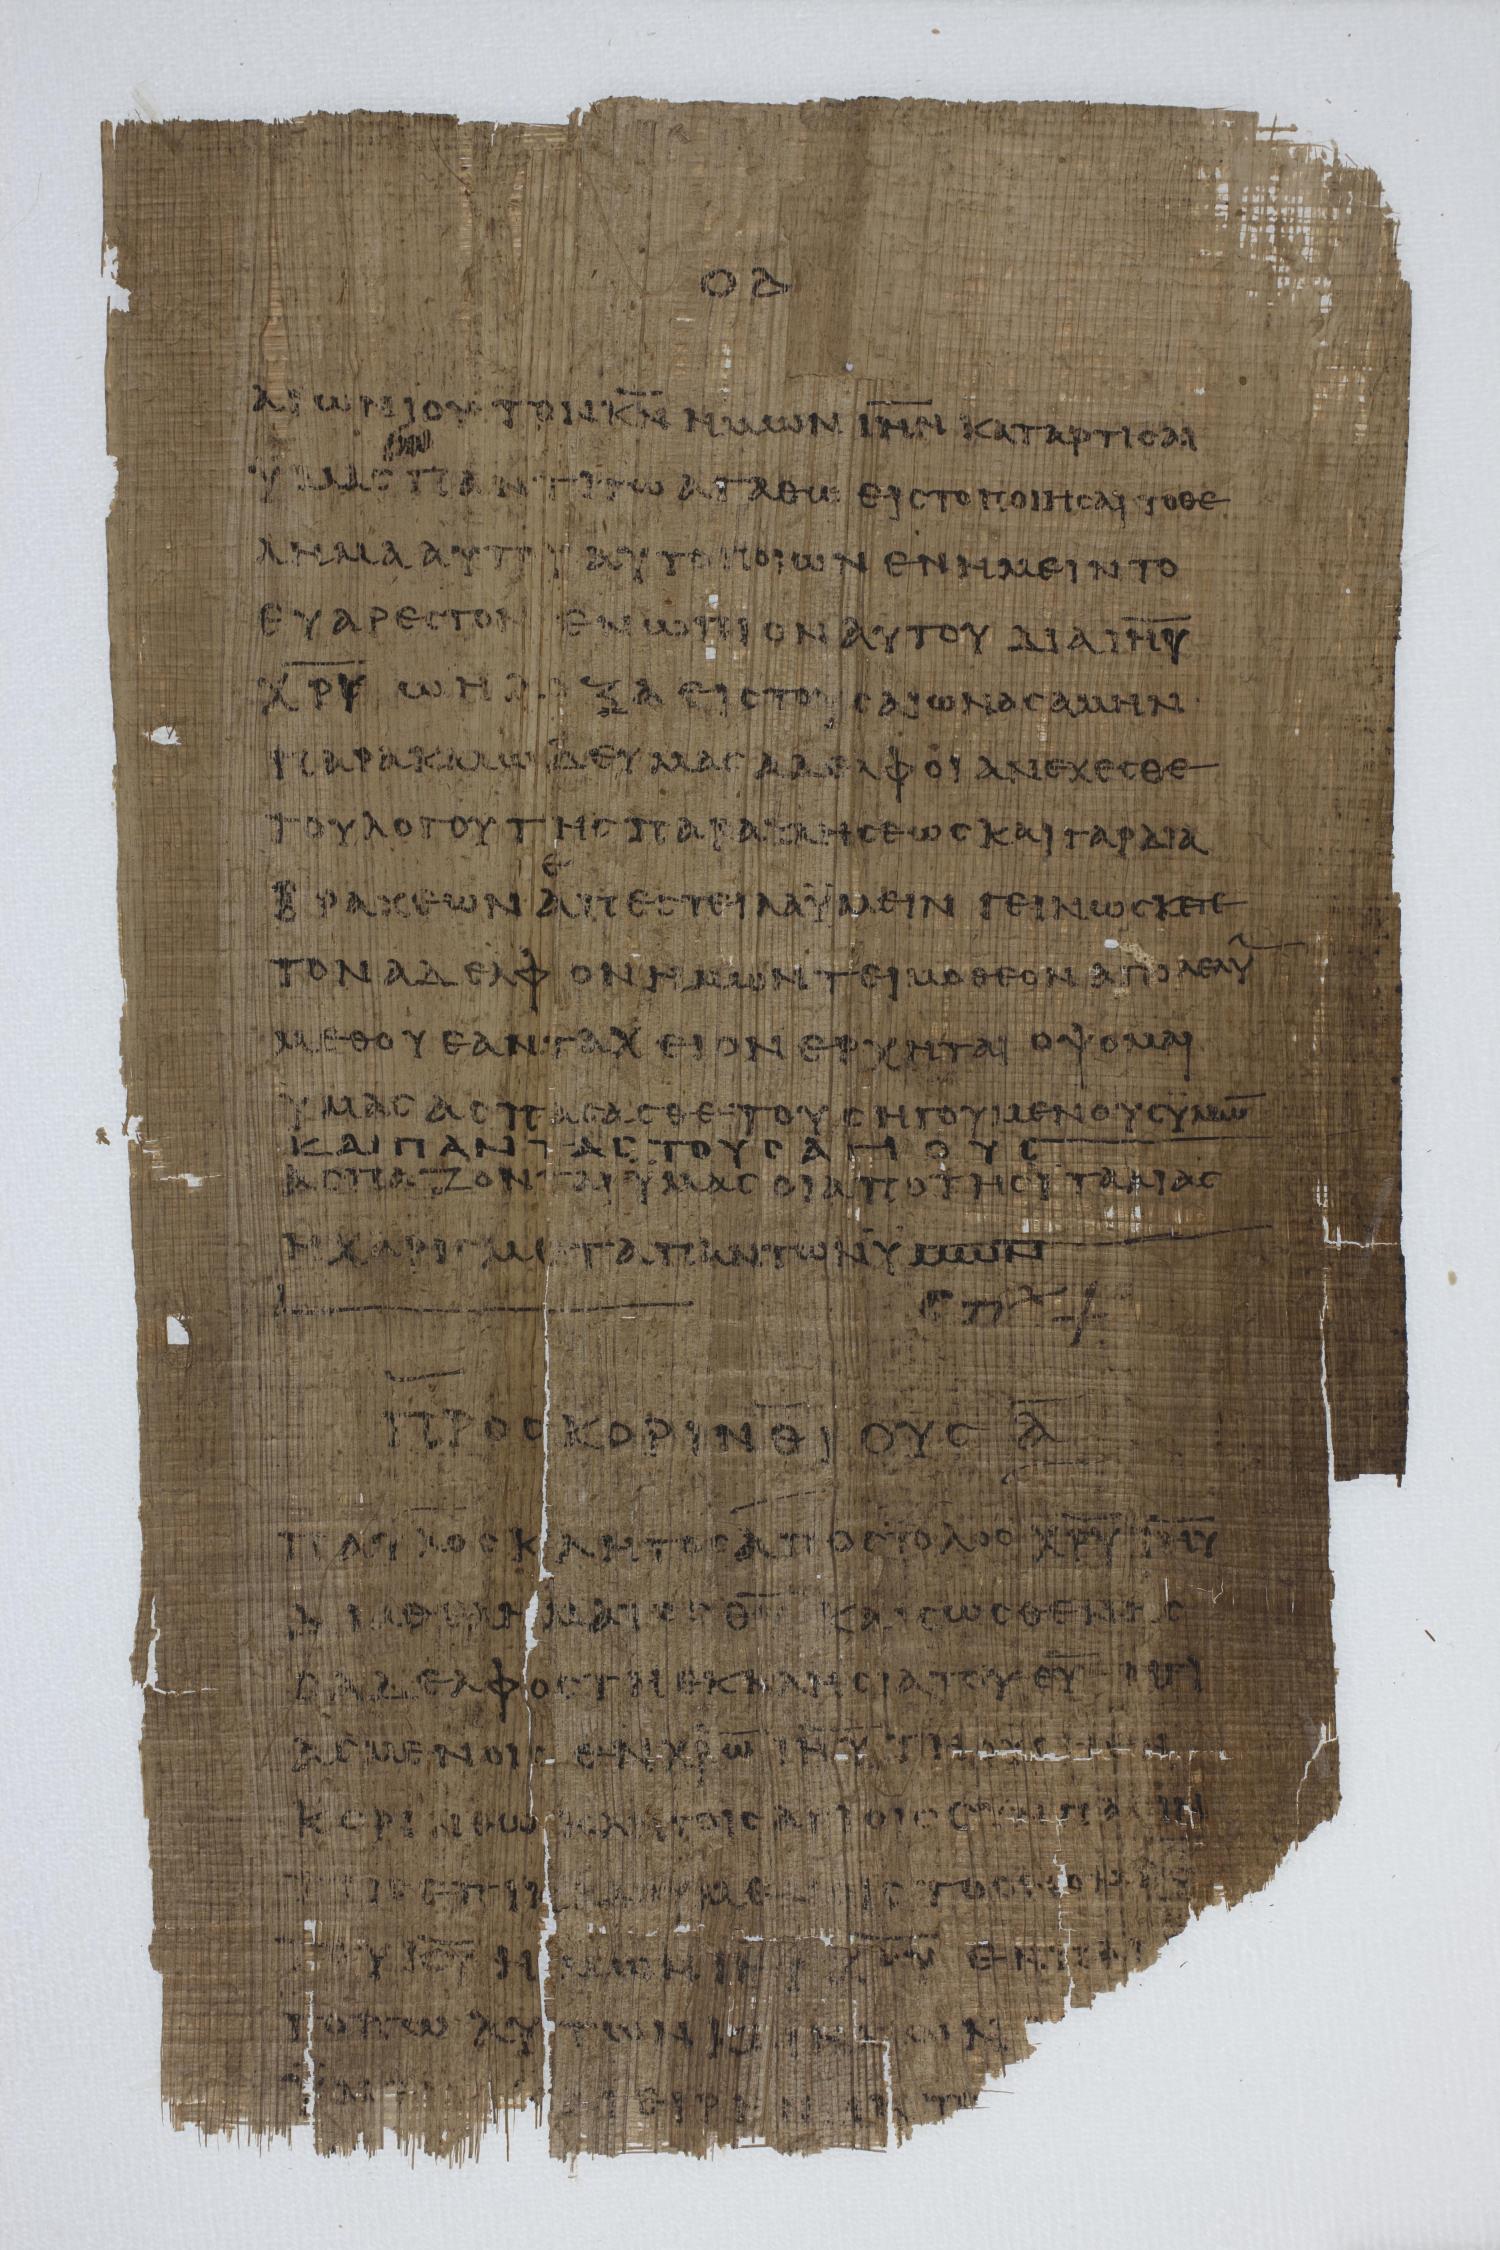 ΟΔ
ΑΙΩΝΙΟΥ ΤΟΝ Κ̅Ν̅ ΗΜΩΝ Ι̅Η̅Ν̅ ΚΑΤΑΡΤΙΣΑΙ
ΥΜΑΣ ΠΑΝΤΙ ΤΩ ΑΓΑΘΩ ΕΙΣ ΤΟ ΠΟΙΗΣΑΙ ΤΟ ΘΕ
ΛΗΜΑ ΑΥΤΟΥ ΑΥΤΟ ΠΟΙΩΝ ΕΝ ΗΜΕΙΝ ΤΟ
ΕΥΑΡΕΣΤΟΝ ΕΝΩΠΙΟΝ ΑΥΤΟΥ ΔΙΑ Ι̅Η̅Υ̅
Χ̅Ρ̅Υ̅ Ω Η ΔΟΞΑ ΕΙΣ ΤΟΥΣ ΑΙΩΝΑΣ ΑΜΗΝ
ΠΑΡΑΚΑΛΩ ΔΕ ΥΜΑΣ ΑΔΕΛΦΟΙ ΑΝΕΧΕΣΘΕ
ΤΟΥ ΛΟΓΟΥ ΤΗΣ ΠΑΡΑΚΛΗΣΕΩΣ ΚΑΙ ΓΑΡ ΔΙΑ
ΒΡΑΧΕΩΝ ΑΠΕΣΤΕΙΛΑ ΫΜΕΙΝ ΓΕΙΝΩΣΚΕΤΕ
ΤΟΝ ΑΔΕΛΦΟΝ ΗΜΩΝ ΤΕΙΜΟΘΕΟΝ ΑΠΟΛΕΛΥ
ΜΕΘ ΟΥ ΕΑΝ ΤΑΧΕΙΟΝ ΕΡΧΗΤΑΙ ΟΨΟΜΑΙ
ΥΜΑΣ ΑΣΠΑΣΑΣΘΕ ΤΟΥΣ ΗΓΟΥΜΕΝΟΥΣ ΫΜΩ̅
ΚΑΙ ΠΑΝΤΑΣ ΤΟΥΣ ΑΓΙΟΥΣ
ΑΣΠΑΖΟΝΤΑΙ ΥΜΑΣ ΟΙ ΑΠΟ ΤΗΣ ΙΤΑΛΙΑΣ
Η ΧΑΡΙΣ ΜΕΤΑ ΠΑΝΤΩΝ ΫΜΩΝ
ΠΡΟΣ ΚΟΡΙΝΘΙΟΥΣ Α̅
ΠΑΥΛΟΣ ΚΛΗΤΟΣ ΑΠΟΣΤΟΛΟΣ Χ̅Ρ̅Υ̅ Ι̅Η̅Υ̅
ΔΙΑ ΘΕΛΗΜΑΤΟΣ Θ̅Υ̅ ΚΑΙ ΣΩΣΘΕΝΗΣ
Ο ΑΔΕΛΦΟΣ ΤΗ ΕΚΚΛΗΣΙΑ ΤΟΥ Θ̅Υ̅ ΗΓΙ
ΑΣΜΕΝΟΙΣ ΕΝ Χ̅Ρ̅Ω̅ Ι̅Η̅Υ̅ ΤΗ ΟΥΣΗ ΕΝ
ΚΟΡΙΝΘΩ ΚΛΗΤΟΙΣ ΑΓΙΟΙΣ ΣΥΝ ΠΑΣΙΝ
ΤΟΥ Κ̅Υ̅ ΗΜΩΝ Ι̅Η̅Υ̅ Χ̅Ρ̅Υ̅ ΕΝ
ΤΟΠΩ ΑΥΤΩΝ